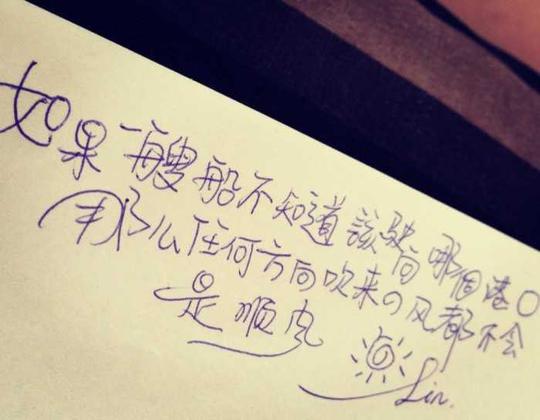 如果一艘船不知道該駛向哪個港口
那么任何方向吹来の风都不会
是順风
Lin.